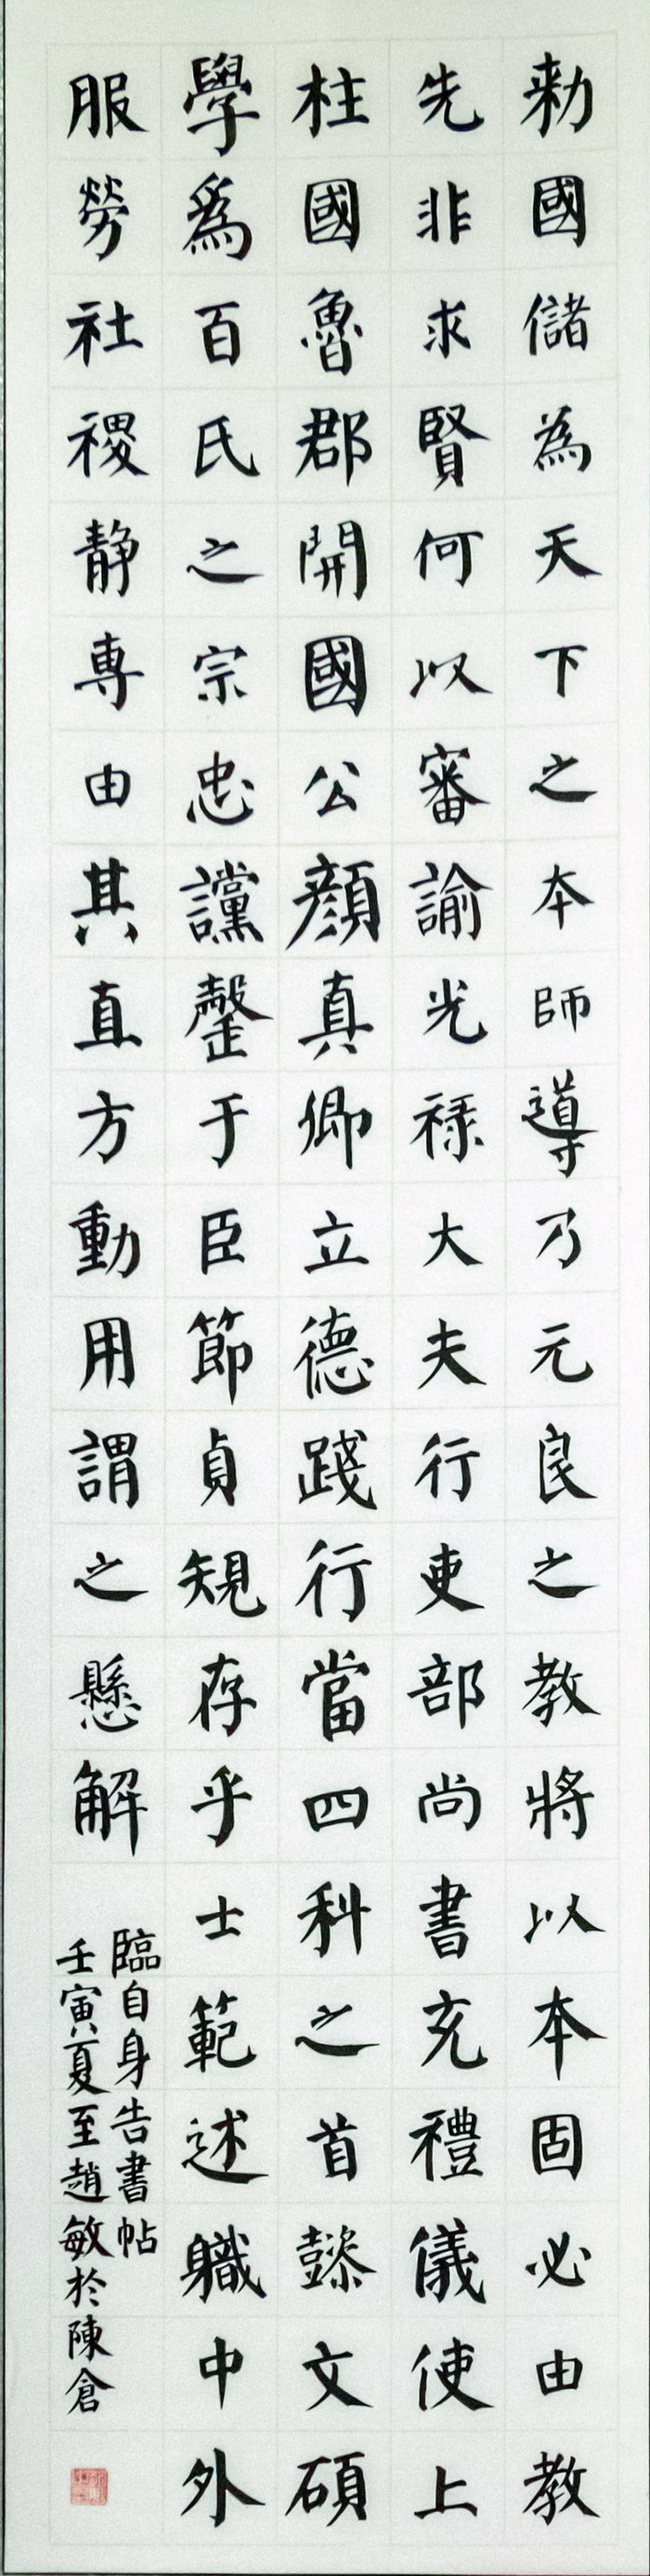 勑國儲為天下之本師導乃元良之教將以本固必由教
先非求賢何以審諭光禄大夫行吏部尚書充禮儀使上
柱國魯郡開國公顏真卿立德踐行當四科之首懿文碩
學為百氏之宗忠讜罄于臣節貞規存乎士範述職中外
服勞社稷静專由其直方動用謂之懸解
臨自身告書帖
壬寅夏至趙敏於陳倉